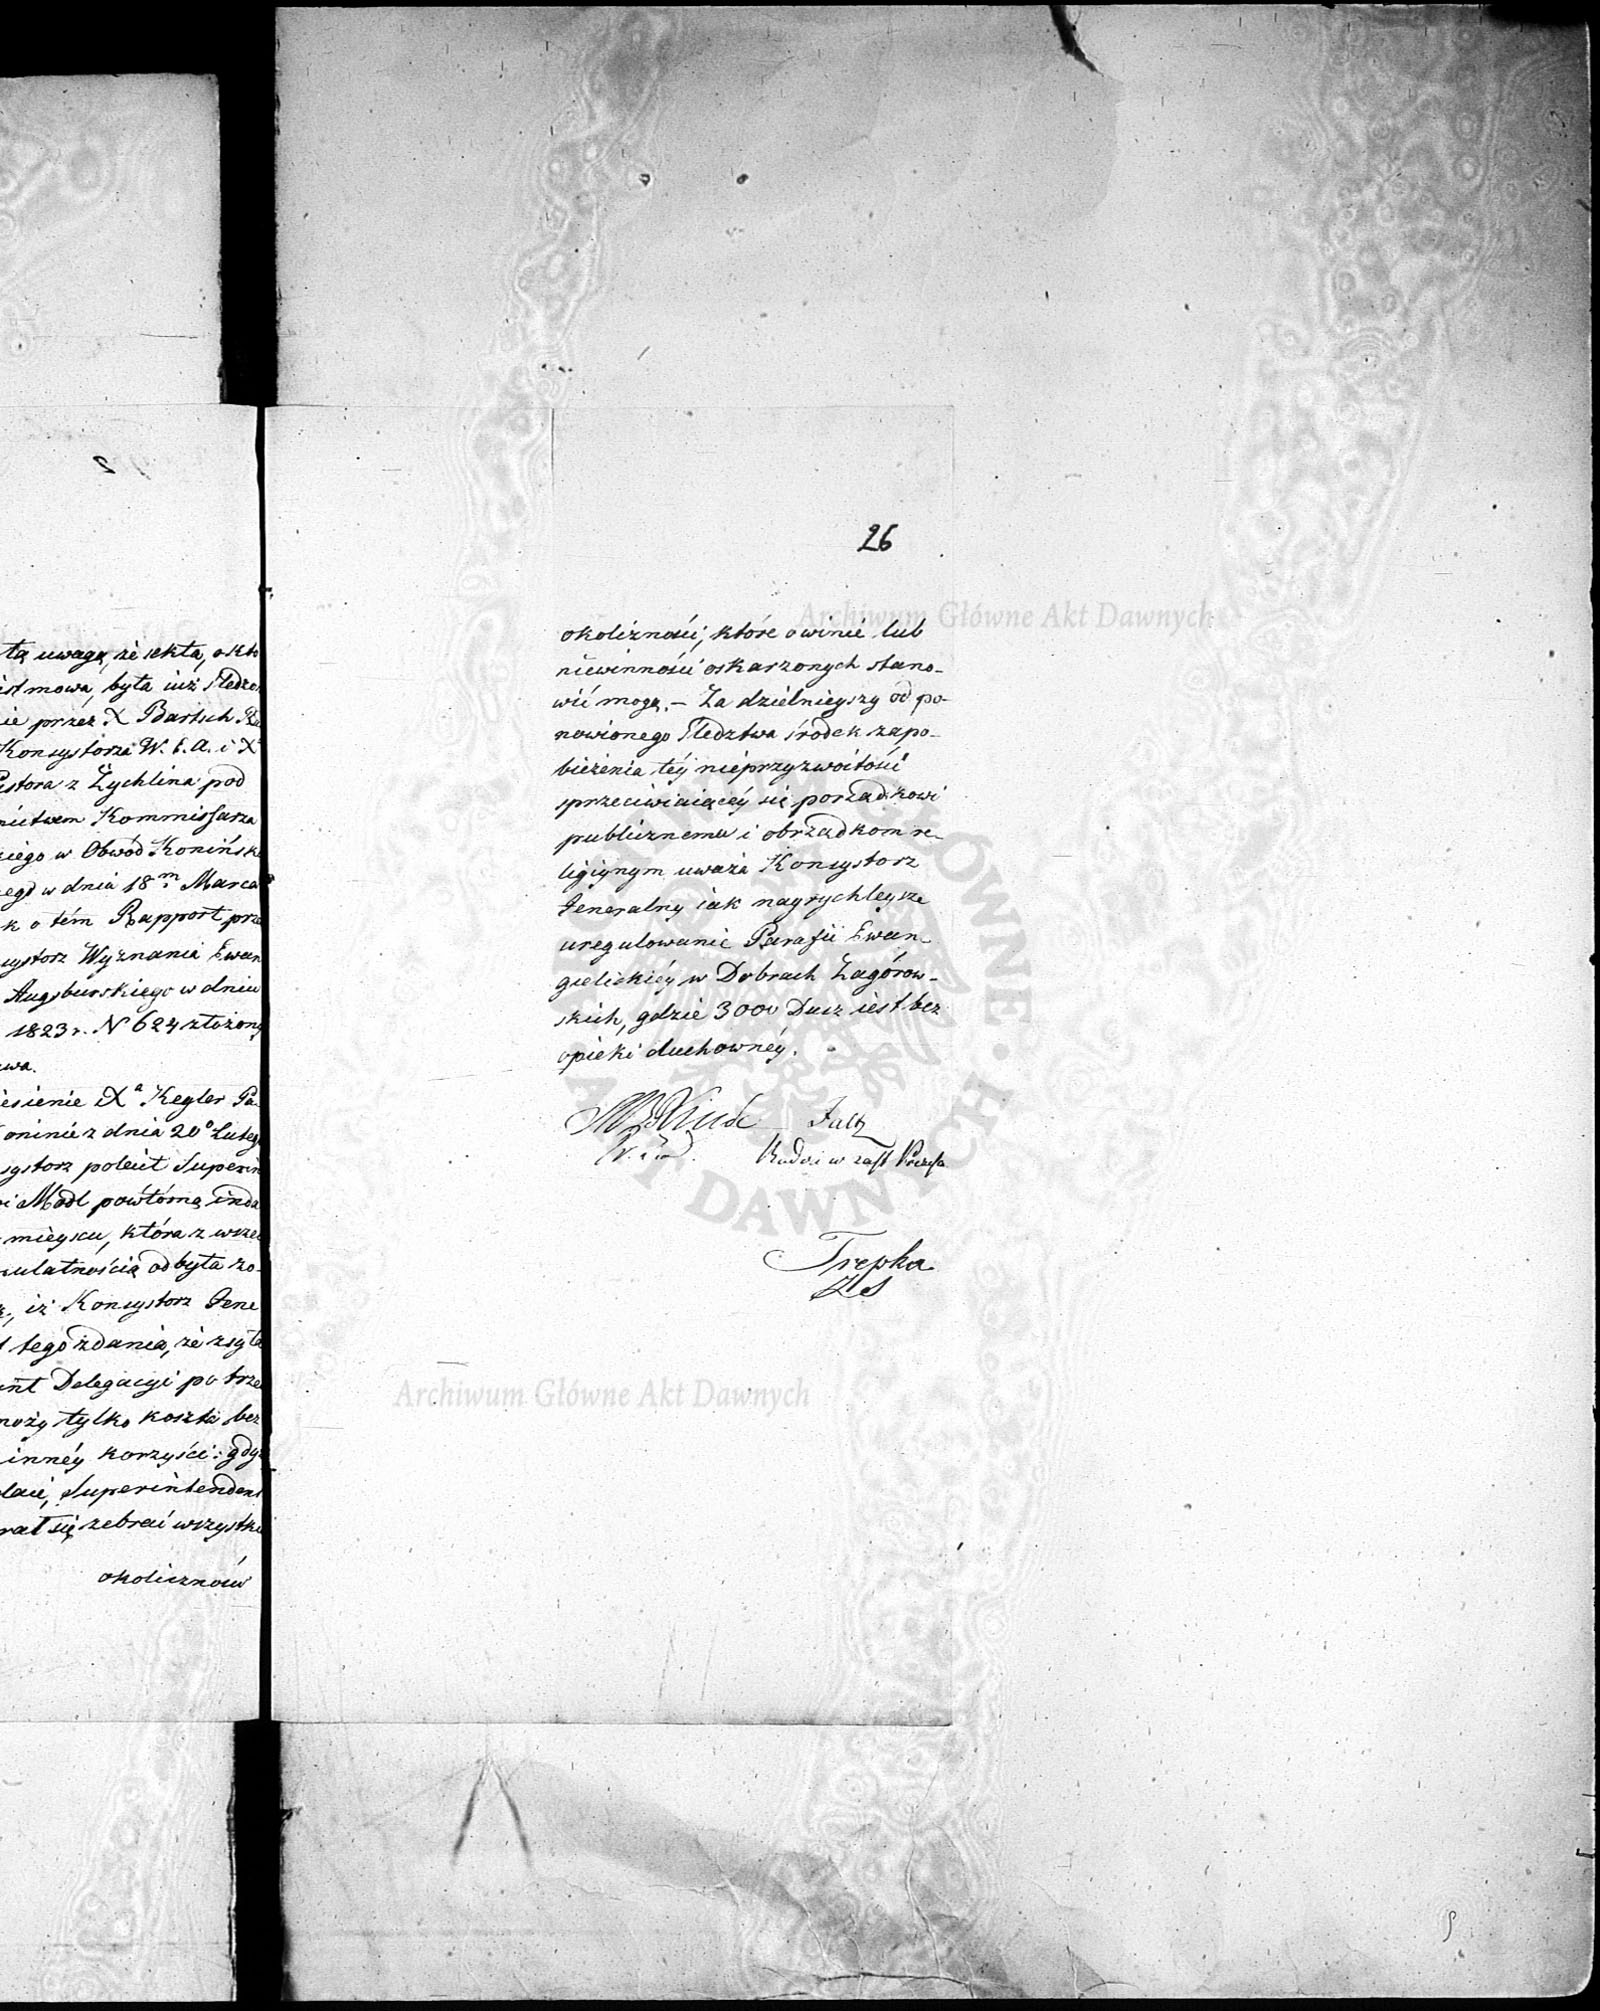 2
tą uwagę, że sekta, o któ
ist mowa, była iuż śledzo
ie przez X Bartsch Ra
Konsystorza W. E. A. i X
Pastora z Żychlina pod
nictwem Kommissarza
kiego w Obwod Konińsk
ego w dniu 18m Marca
k o tém Rapport prze
systorz Wyznania Ewan
Augsburskiego w dniu
1823 r. N 624 złożony
wa.
iesienie Xa Kegler Pa
oninie z dnia 20o Luteg
systorz polecił Superin
i Modl powtórną inda
mieyscu, która z wsze
kulatnością odbyta zo-
iż Konsystorz Jene
tego zdania, że zsyła
nt Delegacyi po trze
noży tylko koszta bez
innéy korzyści: gdy
daie, Superintendent
rał się zebrać wszystki
okoliczności
26
okoliczności, które o winie lub
niewinności oskarzonych stano-
wić mogą. – Za dzielnieyszy od po-
nowionego śledztwa środek zapo-
bieżenia téy nieprzyzwoitości
sprzeciwiaiącéy się porządkowi
publicznemu i obrządkom re-
ligiynym uważa Konsystorz
Jeneralny iak nayrychleysze
uregulowanie Parafii Ewan-
gielickiéy w Dobrach Zagórow-
skich, gdzie 3000 Dusz iest bez
opieki duchownéy.
Linde Faltz
Radzca w zast Prezesa
Trepka
ZS
Archiwum Główne Akt Dawnych
Archiwum Główne Akt Dawnych